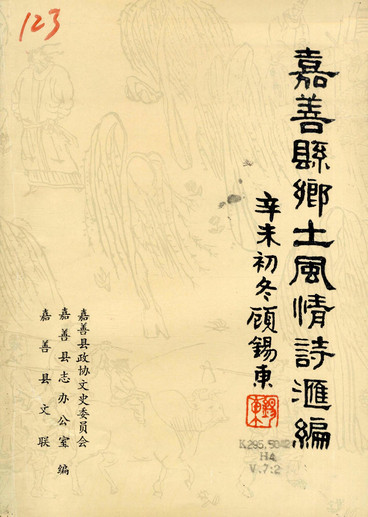 123
嘉善縣鄉土風情詩滙編
辛未初冬顾錫東
嘉善县政协文史委员会
嘉善县志办公室 编
嘉善县文联
K295.5042
H4
V.7:2